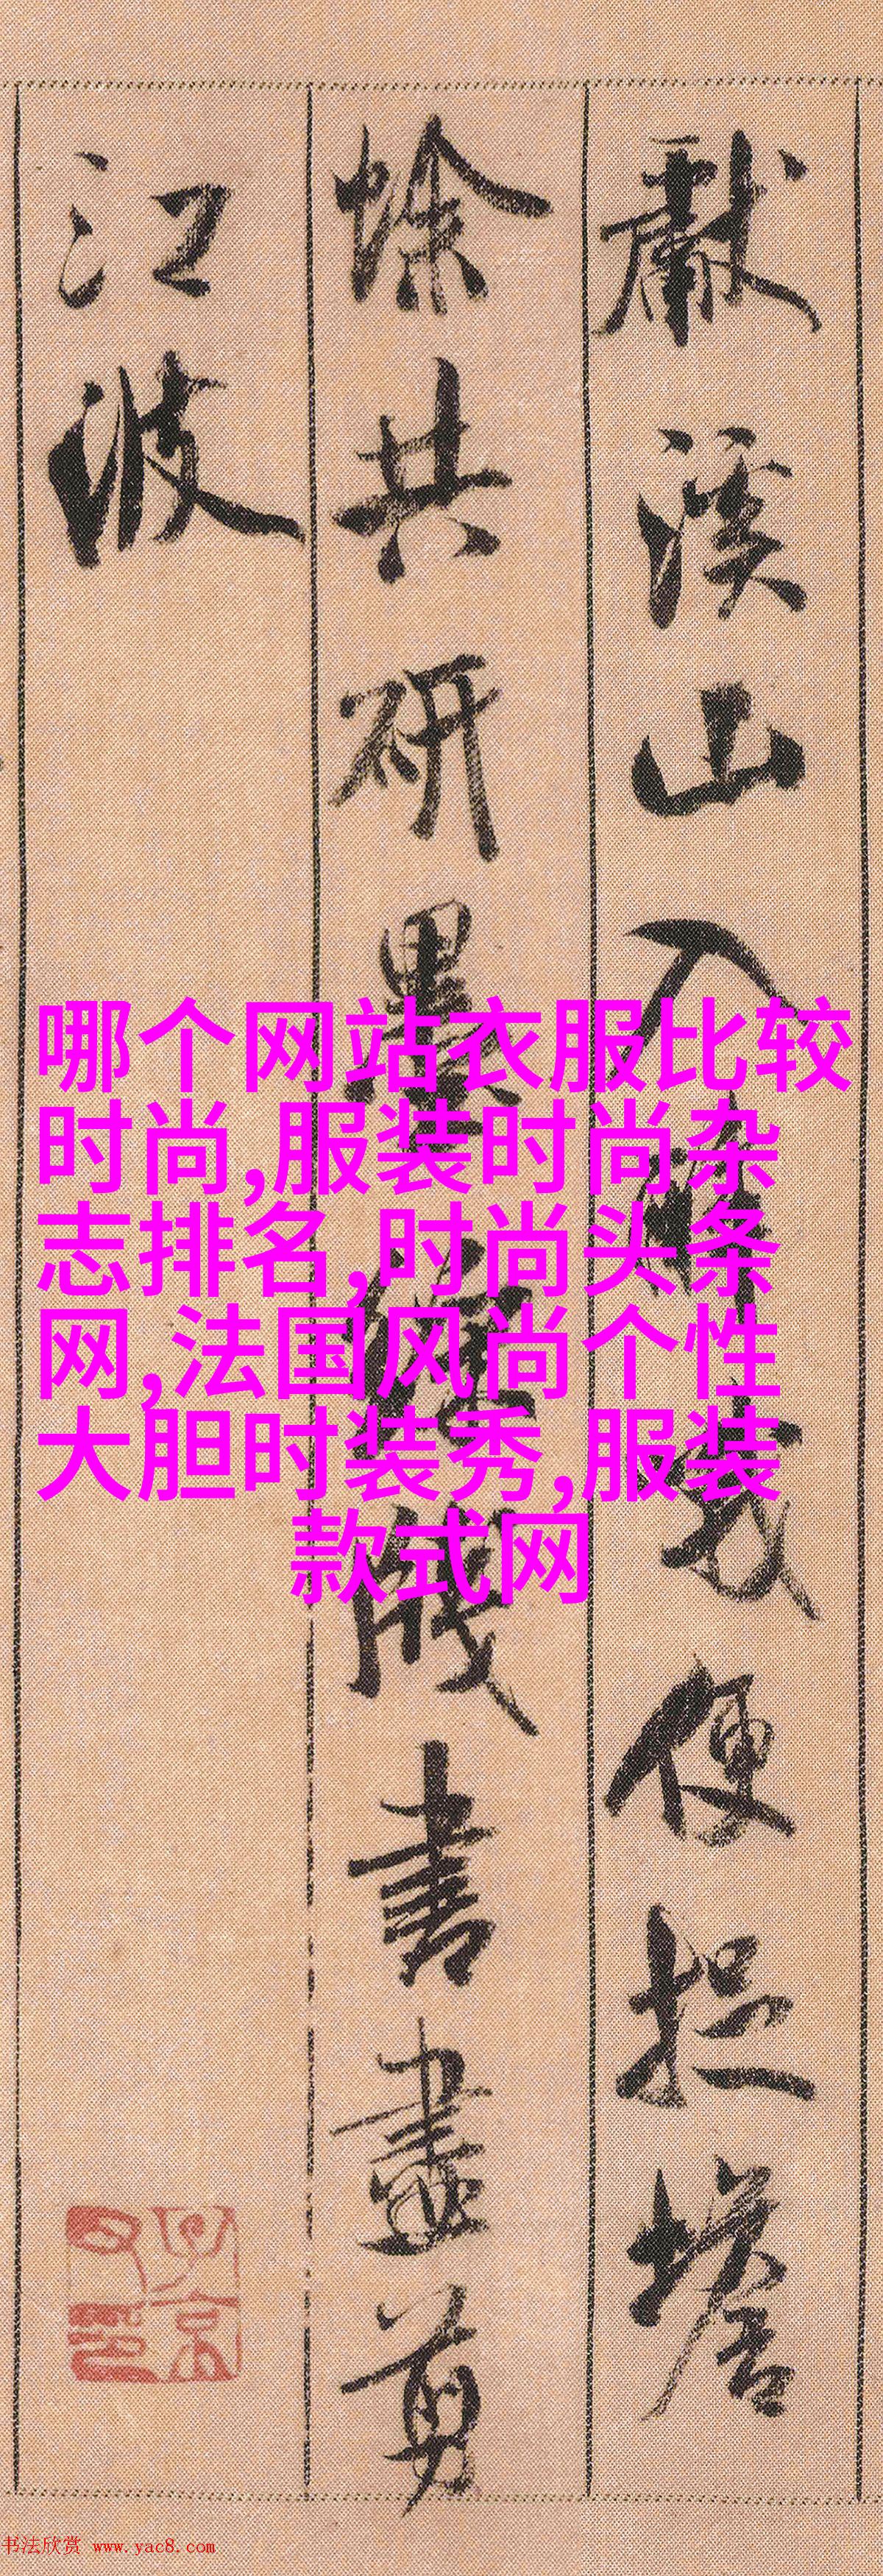 獻溪山入
便捉塔
蜍共研墨
牋書畫剪
江波
哪个网站衣服比较
时尚,服装时尚杂
志排名,时尚头条
网,法国风尚个性
大胆时装秀,服装
款式网
书法欣赏 www.yac8.com